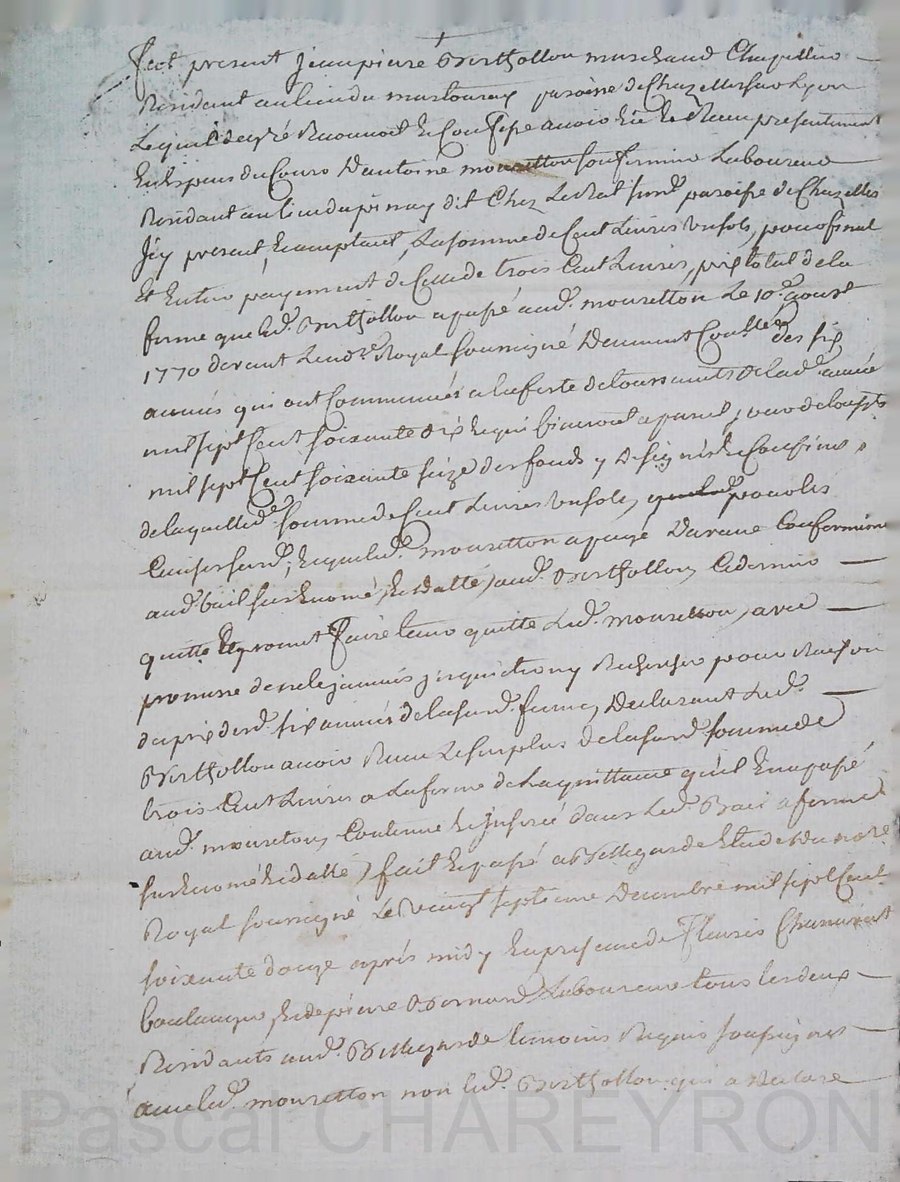 fut present jean pierre Berthollon marchand Chapellier
Residant au lieu du paroisse de Chazelles sur Lyon
Lequel de gré Reconnoit & Confesse avoir eu & Receu presentement
En Especes du Cours D'antoine mouretton son fermier Laboureur
Residant au lieu du pinay dit Chez Le Rat susd. paroisse de Chazelles
Icy present, & acceptant, La somme de Cent Livres un sols, pour final
Et Entier payement de Celle de trois Cent Livres, prix total de la
ferme que led. Berthollon a passé aud. mouretton Le 10e. aoust
1770 devant Le no.re Royal soussigné Deument Conllée des six
années qui ont Commencées a la feste de toussaints de lad. année
mil sept Cent soixante dix & qui finiront a pareil jour de
mil sept Cent soixante seize des fonds y Designés & Confinés,
de laquelle d. somme de Cent Livres un sols, pour les
Causes susd.; & que led. mouretton a payé Davance Conformement
aud. bail susenomé, & datté, aud. Berthollon, Ce dernier
quitte & promet faire tenir quitte Led. mouretton, avec
promesse de ne le jamais inquietter ny Rechercher pour Raison
du prix desd. six années de la susd. ferme, Declarant Led.
Berthollon avoir Receu Le surplus de la susd. somme de
trois Cent Livres a La forme de La quittance qu'il En a passé
aud. mouretton, Contenue & Inserée dans Led. Bail a ferme
susenomé & datté, fait & passé a Bellegarde Etude du no.re
Royal soussigné Le vingt septieme Decembre mil sept Cent
soixante douze après midy En presence de Fleuris
boulanger, & de pierre Bernard Laboureur tous les deux
Residants aud. Bellegarde temoins Requis soussignés
avec led. mouretton non led. Berthollon qui a declaré
Pascal CHAREYRON